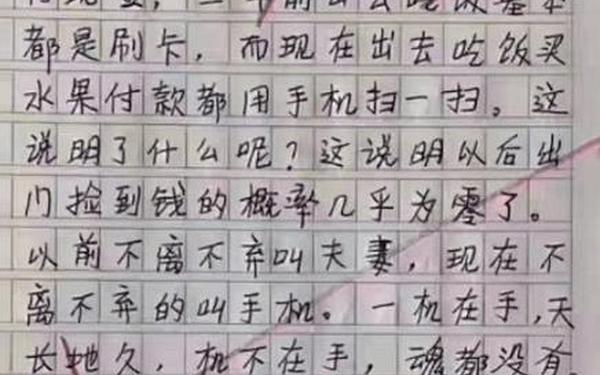 都是刷卡，而现在出去吃饭买
水果付款都用手机扫一扫。这
说明了什么呢？这说明以后出
门捡到钱的概率几乎为零了。
以前不离不弃叫夫妻，现在不
离不弃的叫手机。一机在手，天
长地久，机不在手，魂都没有。